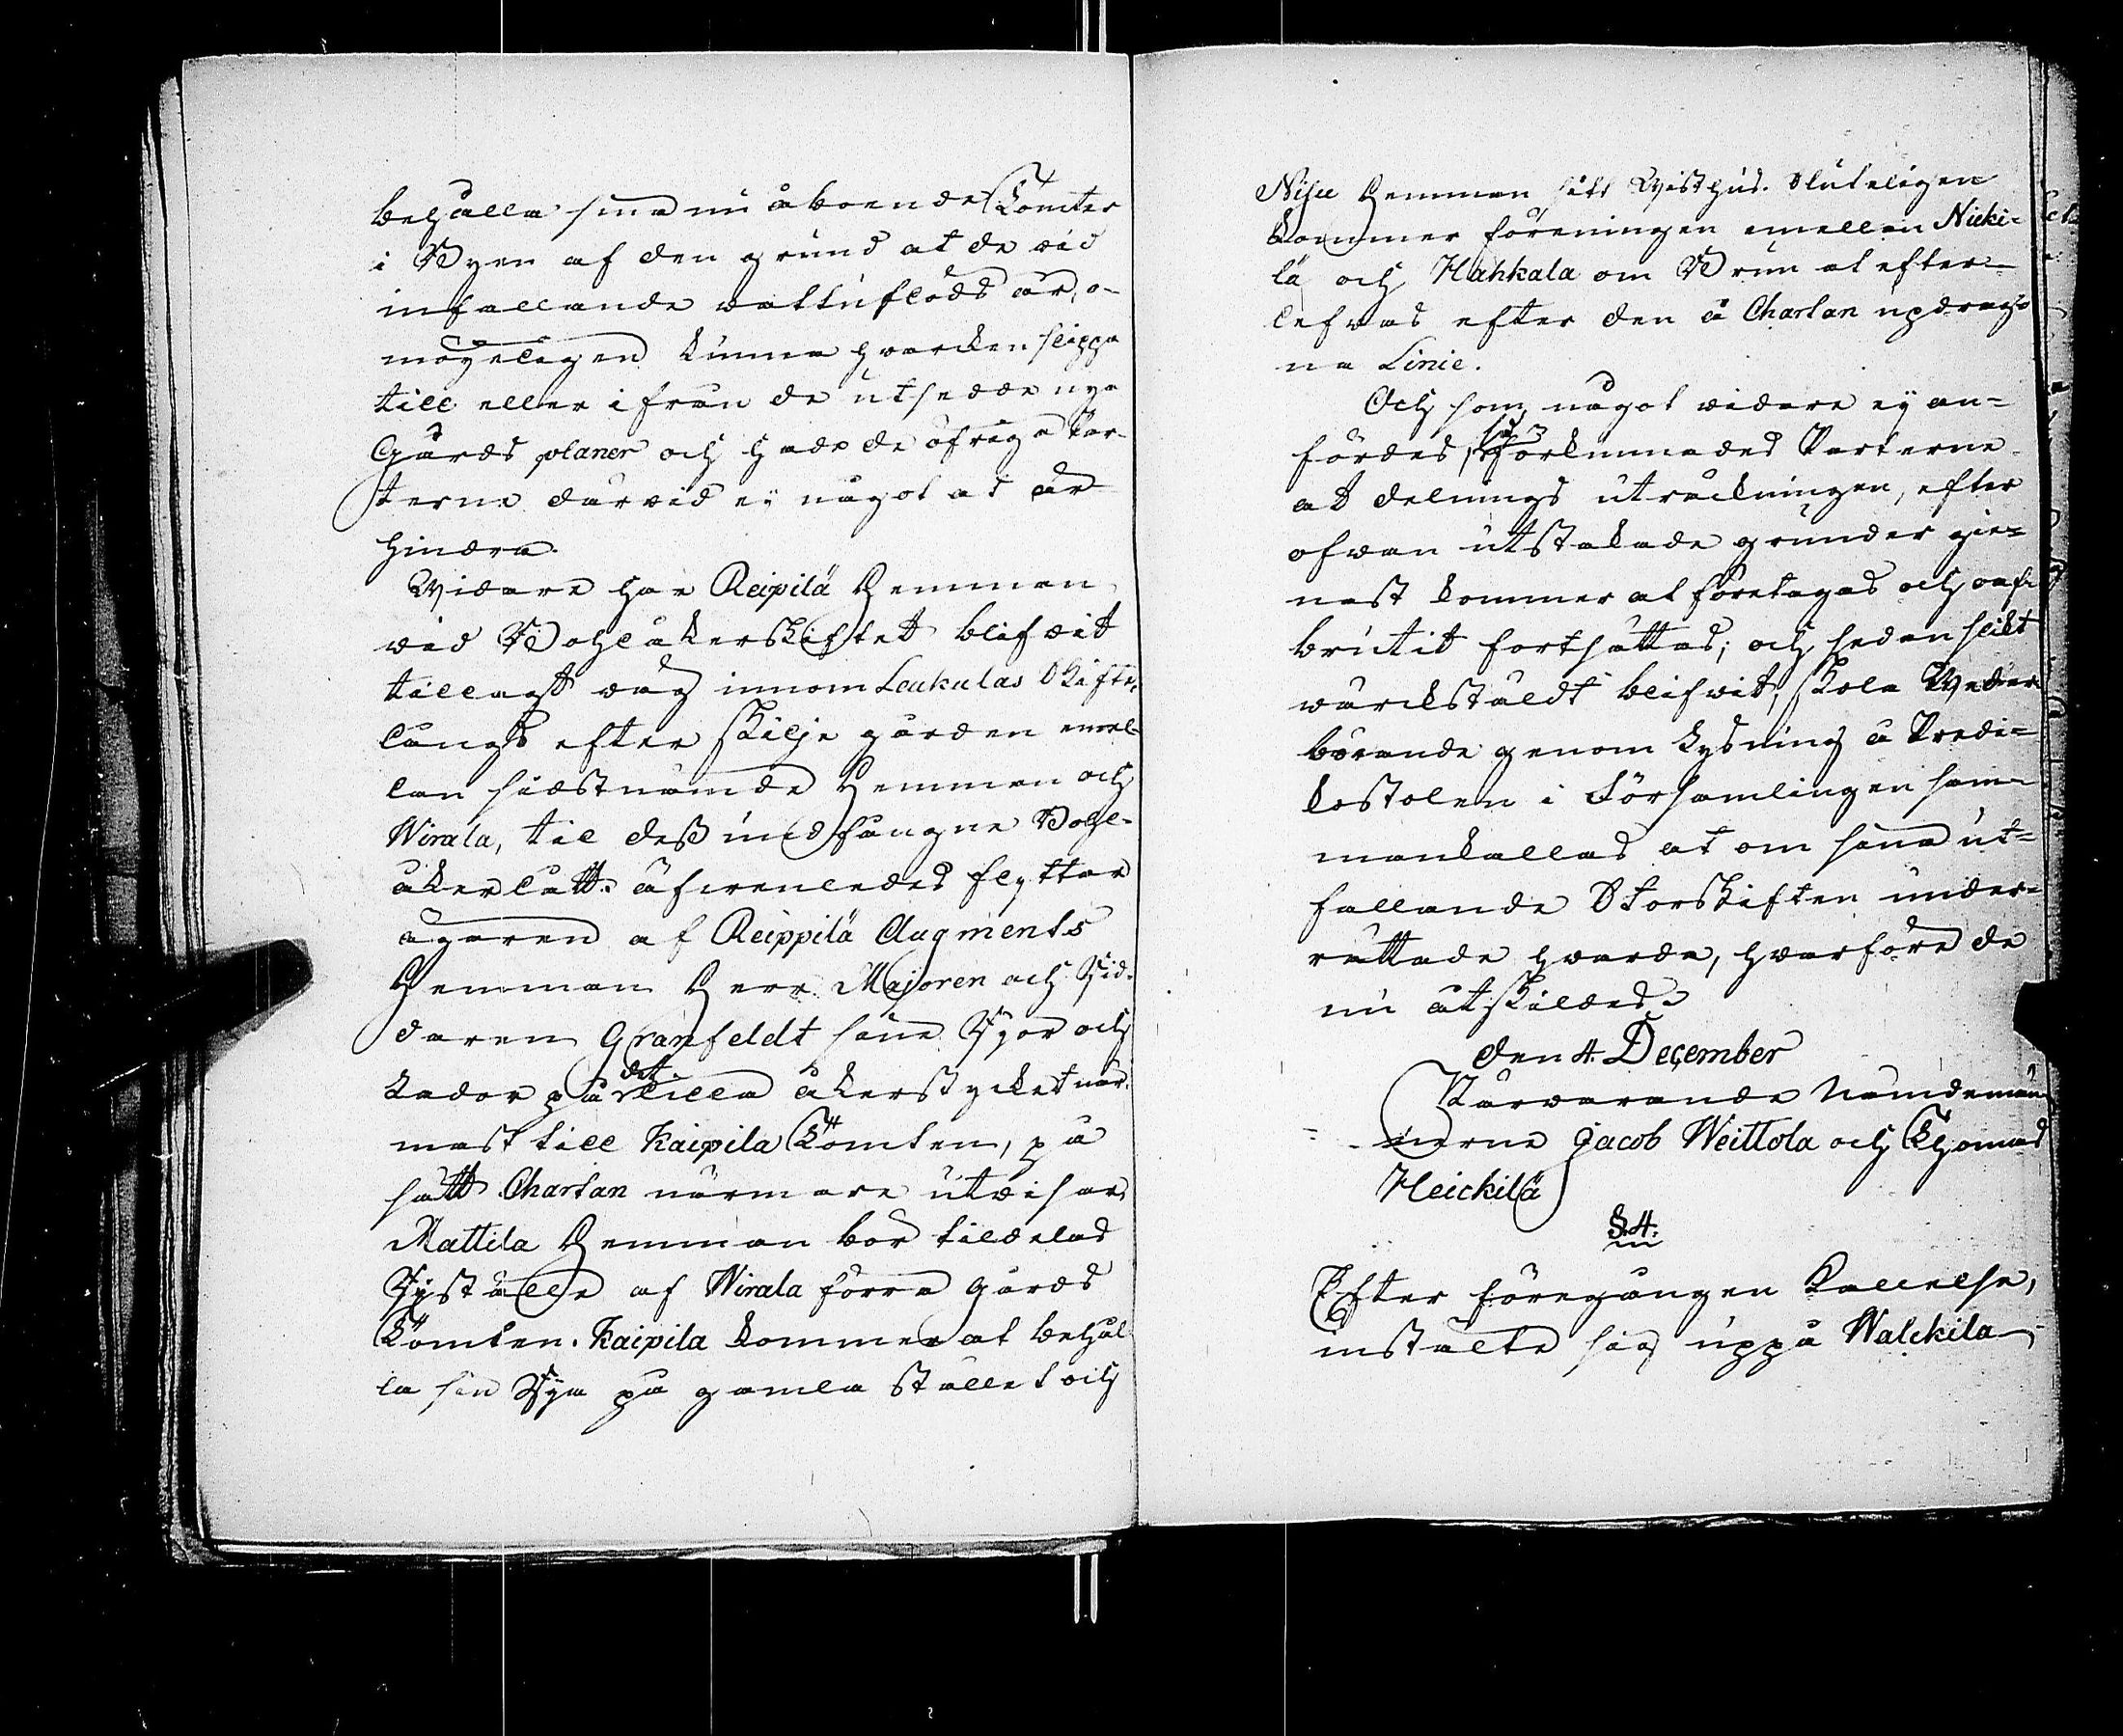 behålla sina nu åboende Tomter
i Byen af den grund at de vid
infallande vattuflods år, o-
möyeligen kunna hvarken slippa
till eller ifrån de utsedde nya
Gårds planer och hade de öfriga Par-
terne därvid ej något at år
hindra.
Widare har Reipilä Hemman
vid Bohlåkerskiftet blifvit
tillagt väg innom Leukulas Skifte,
längs efter skilje gården emel-
lan sidstnämde Hemman och
Wirala, til dess undfångne Bohl-
åkerlått. äfvenledes flyttar
ägaren af Reippilä Augments
Hemman Herr Majoren och Rid-
daren Granfeldt sine Ryor och
Lador på det lilla åkerstycket när-
mast till Kaipila Tomten, på
sätt Chartan närmare utvisar.
Mattila Hemman bör tildelas
Ryställe af Wirala förra gårds
Tomten. Kaipila kommer at behål-
la sin Rya på gamla stället och
Nisu Hemman sitt Wisthus. Sluteligen
kommer föreningen emellan Nicki-
lä och Hahkala om Brun at efter-
lefvas efter den å Chartan updrag-
na Linie.
Och som något vidare ej an-
fördes, så förkunnades Parterne
at delnings uträckningen, efter
ofvan utstakade grunder gie-
nast kommer at företagas och oaf-
brutit fortsättas; och sedan slikt
värckstäldt blifvit, skola Weder-
börande genom Lysning å Predi-
kostolen i Församlingen sam-
mankallas at om sina ut-
fallande Storskiften under-
rättade hvarda, hvarföre de
nu åtskildes.
den 4. December
Närvarande Nämdemän-
nerne Jacob Weittola och Thomas
Heickilä
§. 4.
Efter föregången Kallelse,
instälte sig uppå Walckila